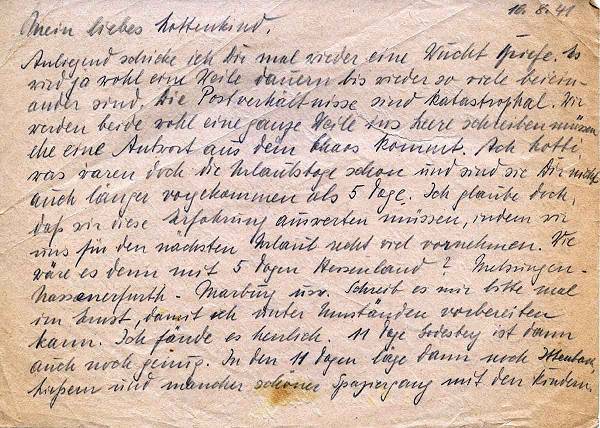 10.8.41
Mein liebes Lottenkind.
Anliegend schicke ich Dir mal wieder eine Wucht Briefe. Es
wird ja wohl eine Weile dauern bis wieder so viele beiein-
ander sind. Die Postverhältnisse sind katastrophal. Wir
werden beide wohl eine ganze Weile ins Leere schreiben müssen,
ehe eine Antwort aus dem Chaos kommt. Ach Lotti,
was waren doch die Urlaubstage schön und sind sie Dir nicht
auch länger vorgekommen als 5 Tage. Ich glaube doch,
daß wir diese Erfahrung auswerten müssen, indem wir
uns für den nächsten Urlaub recht viel vornehmen. Wie
wäre es denn mit 5 Tagen Hessenland? Melsungen-
Wassenerfurth - Marburg usw. Schreib es mir bitte mal
im Ernst, damit ich unter Umständen vorbereiten
kann. Ich fände es herrlich. 11 Tage Godesberg ist dann
auch noch genug. In den 11 Tagen läge dann noch Ittenbach,
und mancher schöner Spaziergang mit den Kindern.